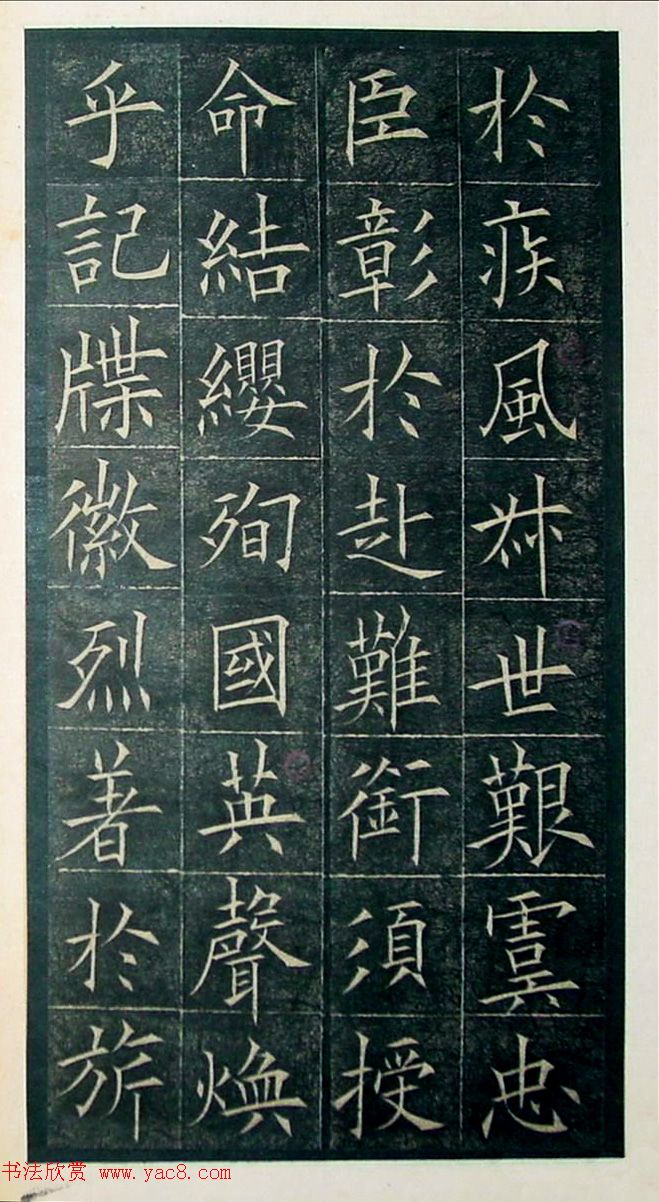 於疾風叔世艱虞忠
臣彰於赴難銜須授
命結纓殉國英聲煥
乎記牒徽烈著於旂
书法欣赏 www.yac8.com